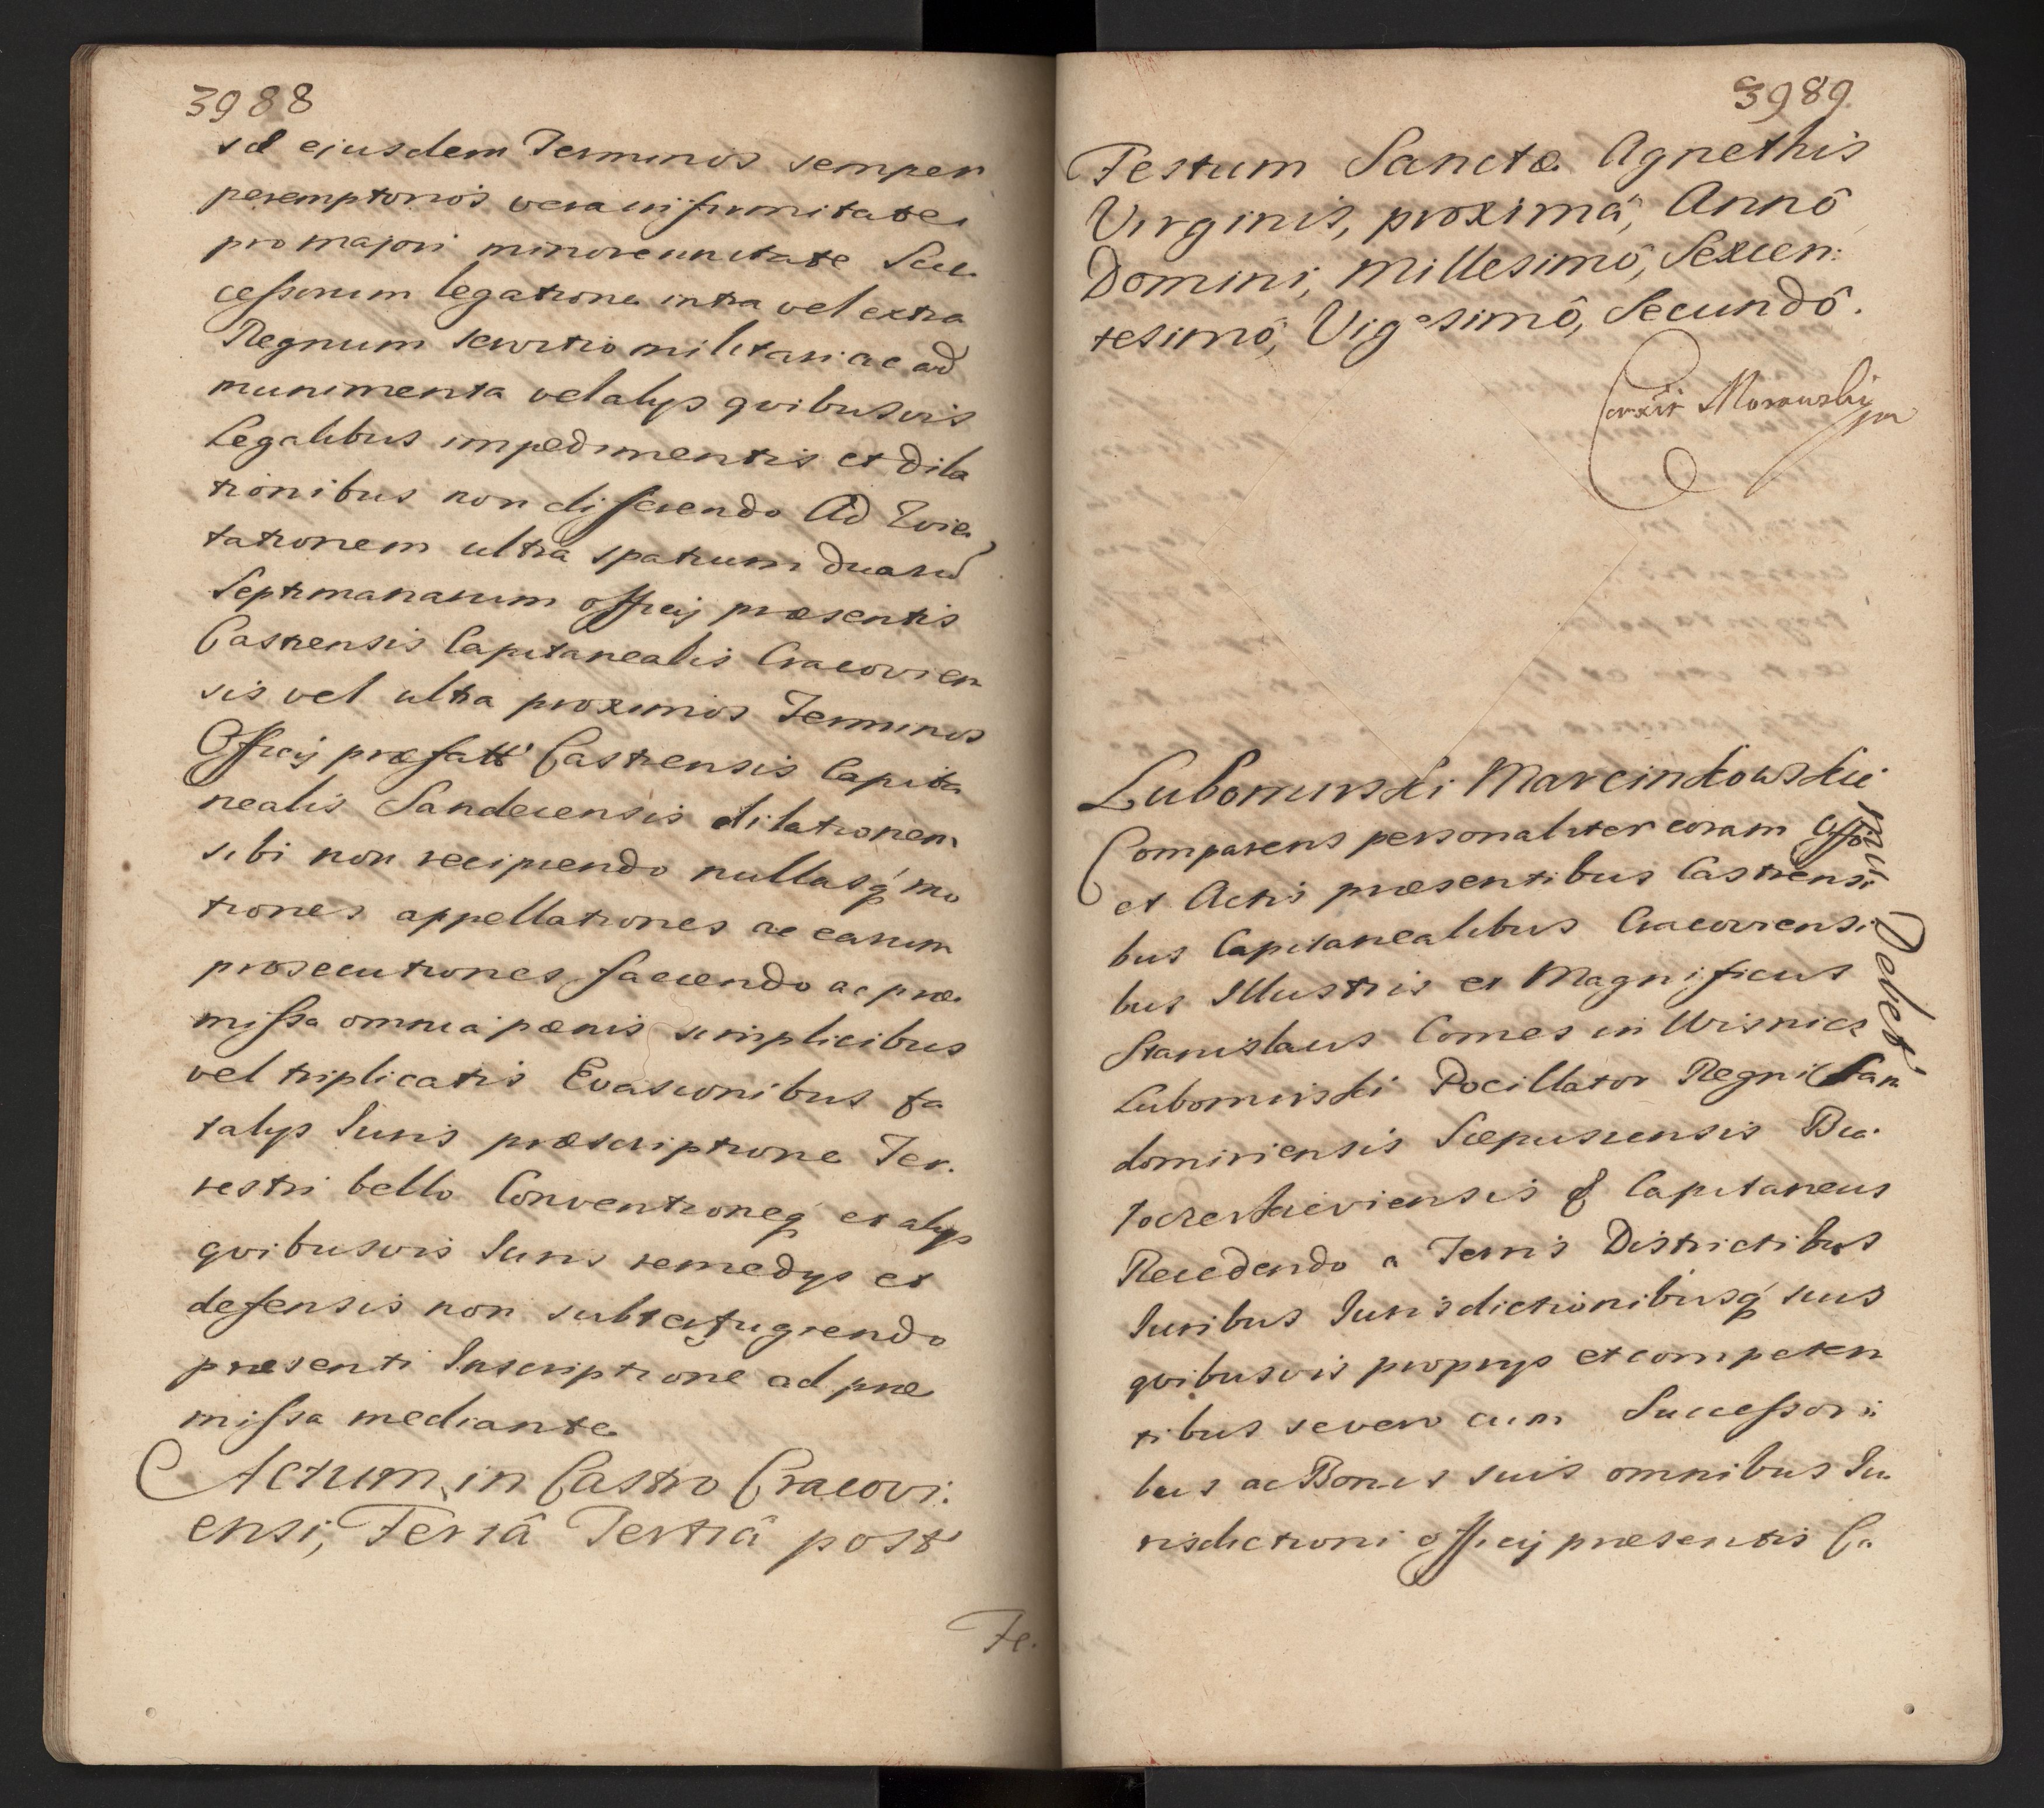 3988
sd ejusdem Terminos semper
peremptorios vera infirmitate
pro majori minore unitate Suc
cessorum legatione intra vel extra
Regnum servitio militari ac ad
munimenta vel alys qvibusvis
Legalibus impedimentis et dila
tionibus non differendo Ad Evic
tationem ultra spatium duarū
Septimanarum officij præsentis
Castrensis Capitanealis Cracovien
sis vel ultra proximos Terminos
Officij præfati Castrensis Capita
nealis Sandecensis dilationem
sibi non recipiendo nullasq́ mo
tiones appellationes ac earum
prosecutiones faciendo ac præ
missa omnia pœnis simplicibus
vel triplicatis Evasionibus fa
talys Iuris præscriptione Ter.
restri bello Conventioneq́ et alys
qvibusvis Iuris remedys et
defensis non subterfugiendo
præsenti Inscriptione ad præ
missa mediante
Actum in Castro Cracovi.
ensi, Feriâ Tertiâ post
Fe.
3989
Festum Sanctæ Agnethis
Virginis, proximâ, Annô
Domini, Millesimô, Sexcen:
tesimô, Vigesimô, Secundô.
Correxit Morawski
mp
Lubomirski Marcinkowskie
mu Debet
Comparens personaliter coram Offo
et Actis præsentibus Castrensi
bus Capitanealibus Cracoviensi
bus Illustris et Magnificus
Stanislaus Comes in Wisnicz
Lubomirski Pocillator Regni San
domiriensis Scepusiensis Bia
łocerkieviensis & Capitaneus
Recedendo a Terris Districtibus
Iuribus Iurisdictionibusq́ suis
qvibusvis proprys et competen
tibus se vero cum Successori
bus ac Bonis suis omnibus Iu
risdictioni officij præsentis Ca